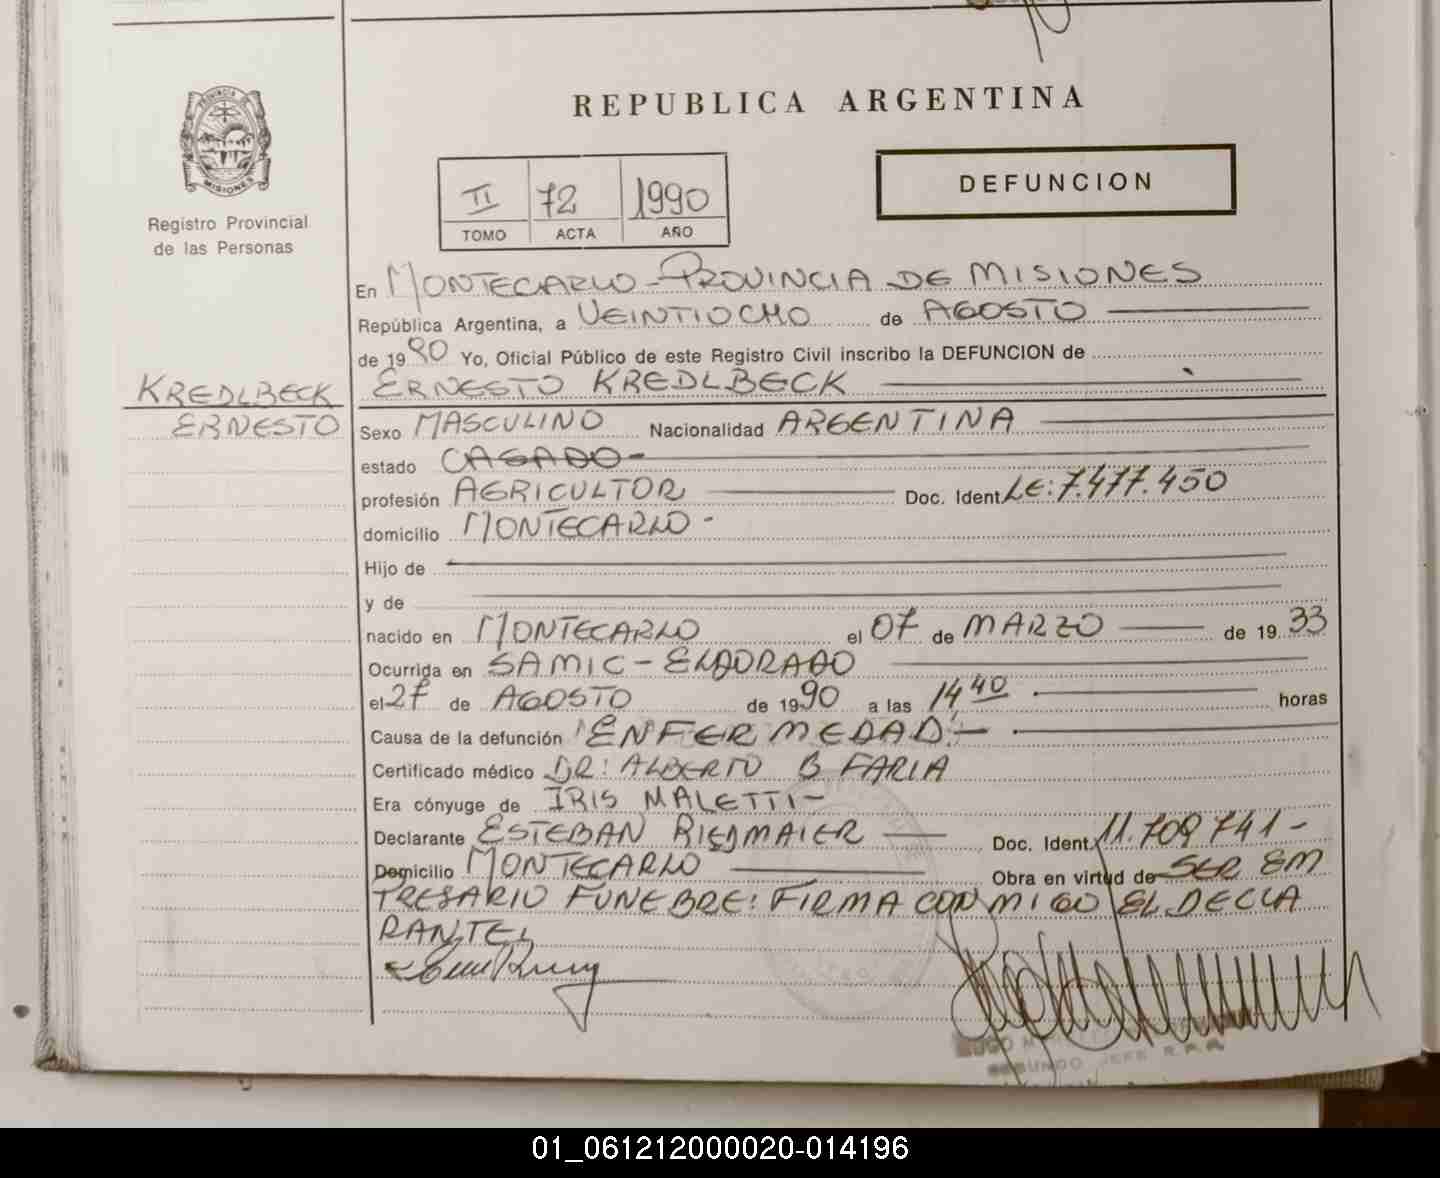 REPUBLICA ARGENTINA
PROVINCIA DE
MISIONES
Registro Provincial
de las Personas
II 72 1990
TOMO ACTA AÑO
DEFUNCION
En MONTECARLO-PROVINCIA DE MISIONES
República Argentina, a VEINTIOCHO de AGOSTO
de 1990 Yo, Oficial Público de este Registro Civil inscribo la DEFUNCION de
KREDLBECK
ERNESTO
ERNESTO KREDLBECK
Sexo MASCULINO Nacionalidad ARGENTINA
estado CASADO-
profesión AGRICULTOR Doc. Ident. LE: 7.477.450
domicilio MONTECARLO-
Hijo de
y de
nacido en MONTECARLO el 07 de MARZO de 1933
Ocurrida en SAMIC-ELDORADO
el 27 de AGOSTO de 1990 a las 14,40 horas
Causa de la defunción "ENFERMEDAD"-
Certificado médico DR: ALBERTO B FARIA
Era cónyuge de IRIS MALETTI-
Declarante ESTEBAN RIEDMAIER Doc. Ident. 11.709741-
Domicilio MONTECARLO Obra en virtud de SER EM
PRESARIO FUNEBRE: FIRMA CONMIGO EL DECLA
RANTE,
SEGUNDO JEFE R.P.P.
01_061212000020-014196